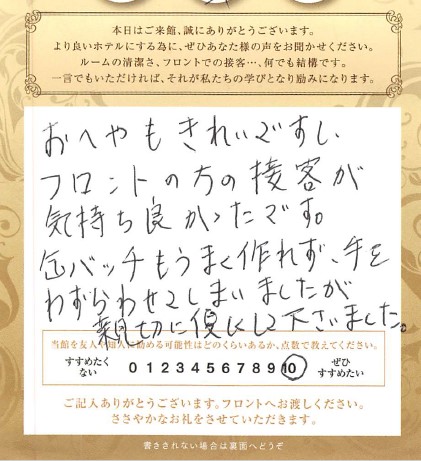 本日はご来館、誠にありがとうございます。
より良いホテルにする為に、ぜひあなた様の声をお聞かせください。
ルームの清潔さ、フロントでの接客…、何でも結構です。
一言でもいただければ、それが私たちの学びとなり励みになります。
おへやもきれいですし
フロントの方の接客が
気持ち良かったです。
缶バッチもうまく作れず、手を
わずらわせてしまいましたが
親切に優しくして下さいました。
当館を友人や知人に勧める可能性はどのくらいあるか、点数で教えてください。
すすめたくない 0 1 2 3 4 5 6 7 8 9 10 ぜひすすめたい
ご記入ありがとうございます。フロントへお渡しください。
ささやかなお礼をさせていただきます。
書ききれない場合は裏面へどうぞ